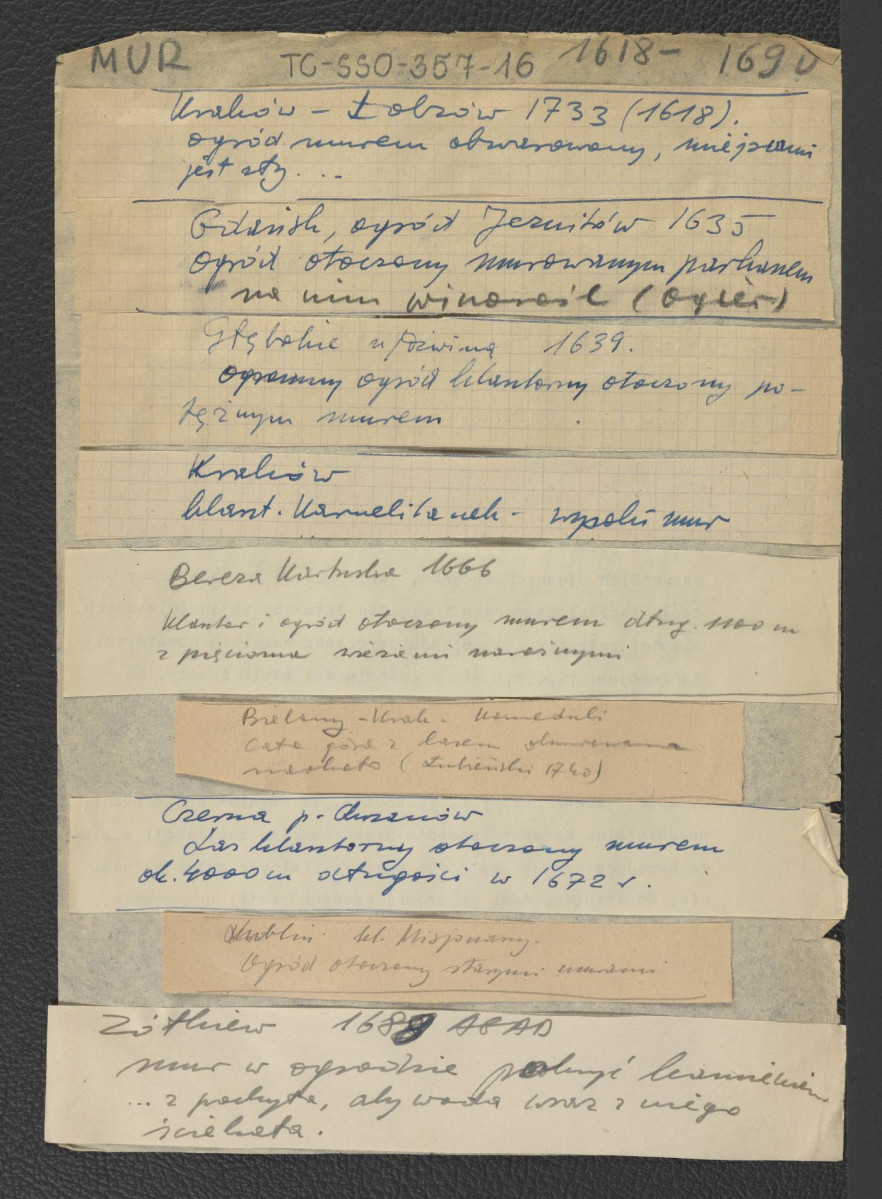 MUR TG-SSO-357-16 1618-1690
Kraków - Łobzów 1733 (1618).
ogród murem obwarowany, miejscami
jest zły...
Gdańsk, ogród Jezuitów 1635
ogród otoczony murowanym parkanem
na nim winorośl (Ogier)
Głębokie n/Dźwiną 1639.
ogromny ogród klasztorny otoczony po-
tężnym murem
Kraków
klaszt. Karmelitanek - wysoki mur
Bereza Kartuska 1666
Klasztor i ogród otoczony murem dług. 1100 m
z pięcioma wieżami narożnymi
Bielany - Krak. Kameduli
Cała góra z lasem obmurowana
naokoło (Łubieński 1740)
Czerna p. Chrzanów
Las klasztorny otoczony murem
ok. 4000 m długości w 1672 r.
Lublin. kl. Misjonarzy.
Ogród otoczony starymi murami
Żółkiew 1688 AGAD
mur w ogrodzie pokryć kamieniem
... z pochyła, aby woda wraz z niego
ściekała.